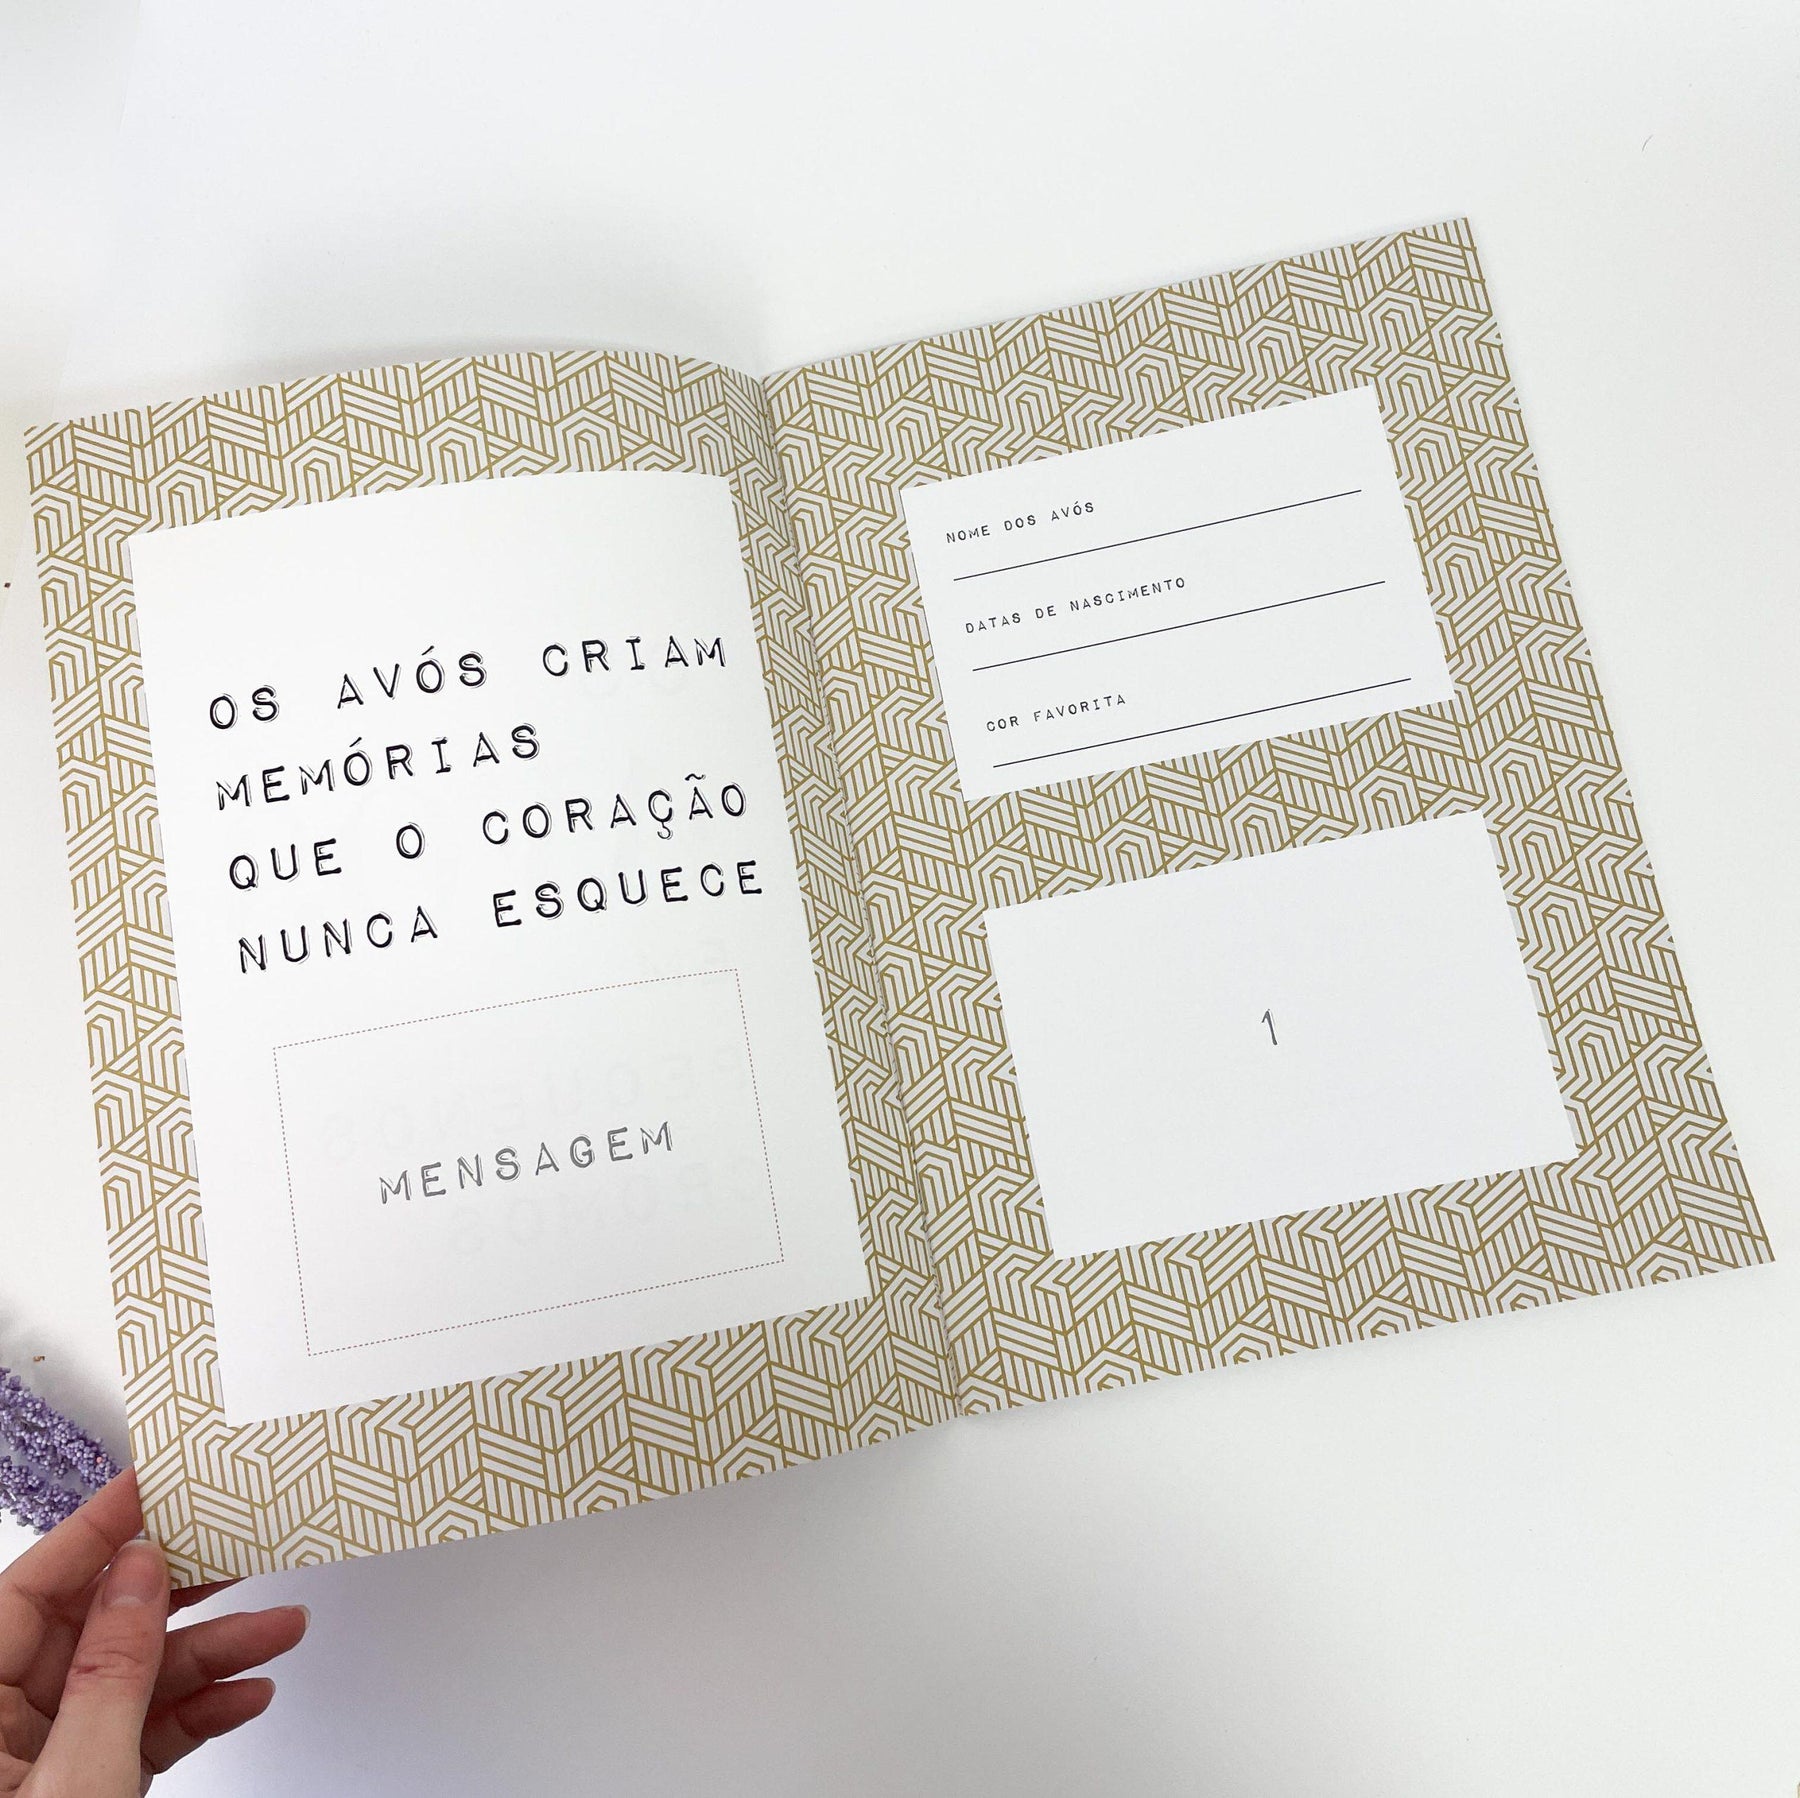 OS AVÓS CRIAM
MEMÓRIAS
QUE O CORAÇÃO
NUNCA ESQUECE
MENSAGEM
NOME DOS AVÓS
DATAS DE NASCIMENTO
COR FAVORITA
1